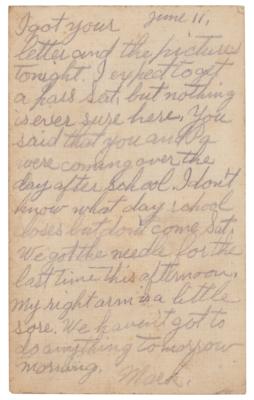 June 11,
I got your
letter and the picture
tonight. I expect to get
a pass Sat, but nothing
is ever sure here. You
said that you and Pg
were coming over the
day after school. I don't
know what day school
closes but don't come Sat.
We got the needle for the
last time this afternoon.
My right arm is a little
sore. We haven't got to
do anything tomorrow
morning.
Mark.